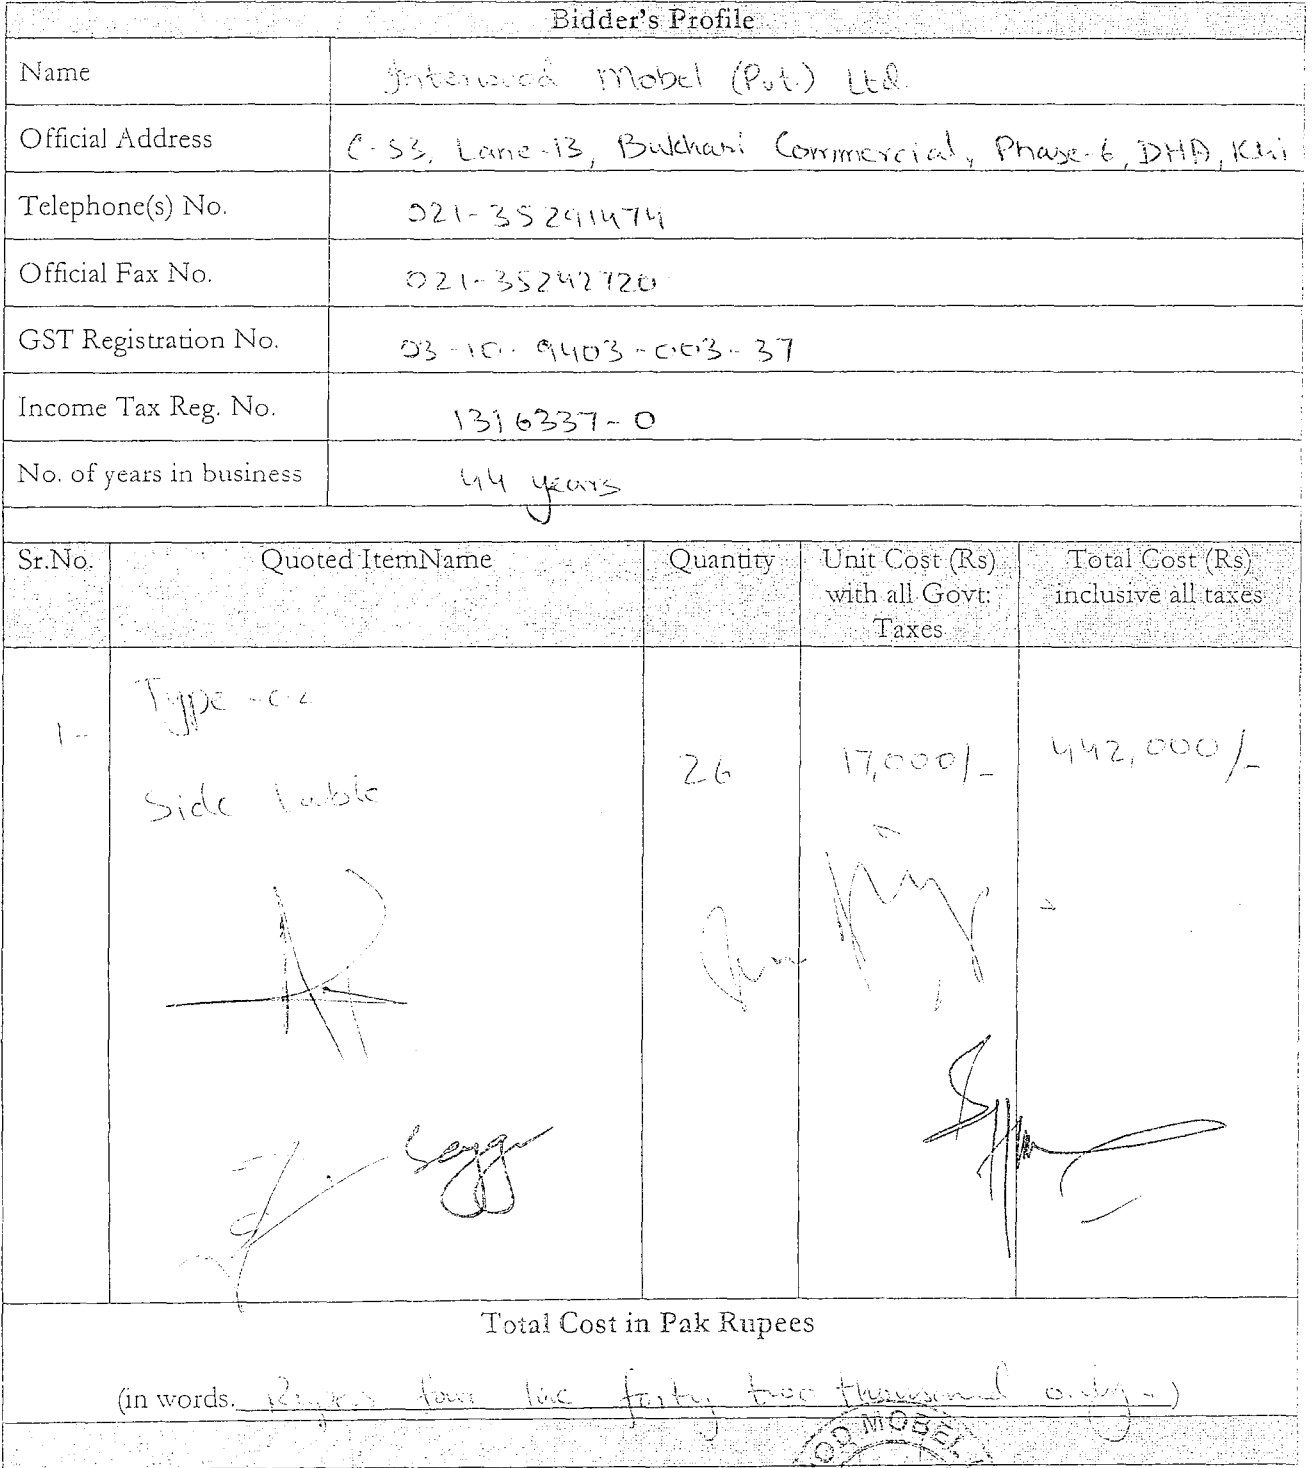 Bidder's Profile
Name Interwood Mobel (Pvt.) Ltd.
Official Address C-53, Lane-13, Bukhari Commercial, Phase-6, DHA, Khi
Telephone(s) No. 021-35291474
Official Fax No. 021-35242720
GST Registration No. 03-10-9403-003-37
Income Tax Reg. No. 1316337-0
No. of years in business 44 years
Sr.No. Quoted ItemName Quantity Unit Cost (Rs) Total Cost (Rs)
with all Govt: inclusive all taxes
Taxes
Type
1- 26 17,000/- 442,000/-
Side table
Total Cost in Pak Rupees
(in words. Rupees four lac forty two thousand only-)
OD MOBEL